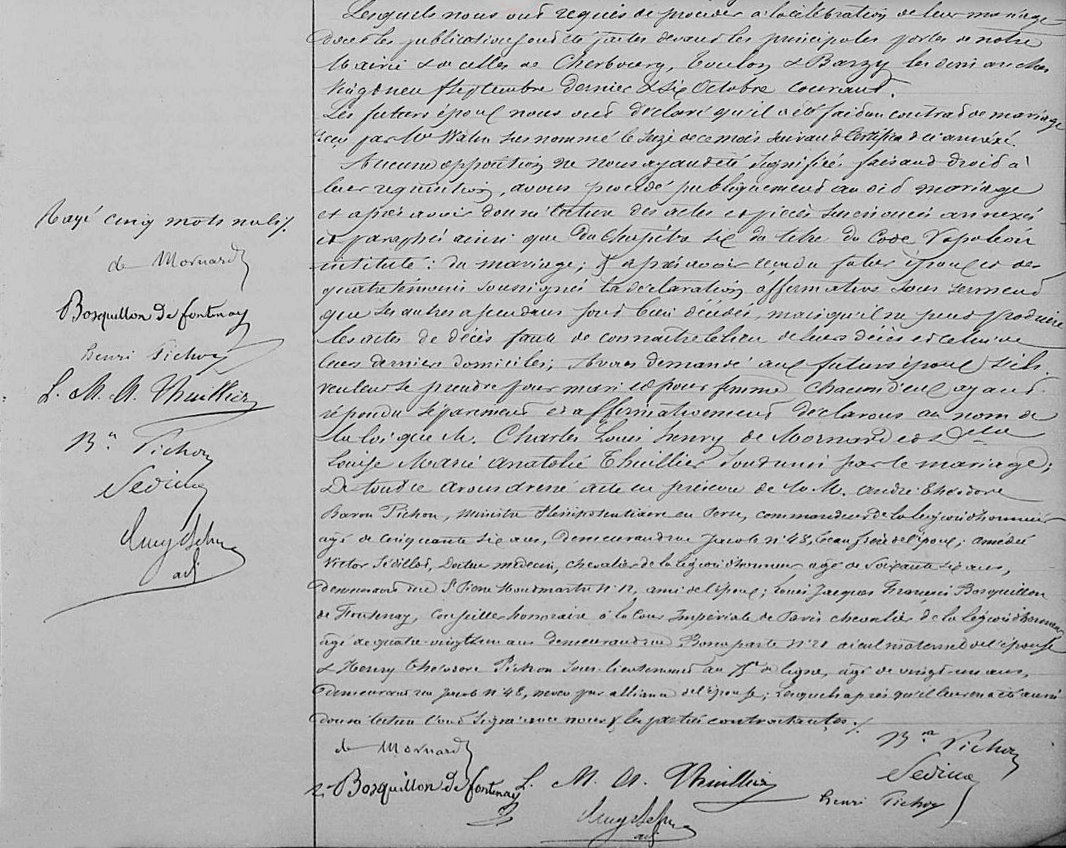 Lesquels nous ont requis de procéder à la célébration de leur mariage
dont les publications ont été faites devant les principales portes de notre
Mairie & de celles de Cherbourg, Toulon & Barzy les dimanches
vingt neuf Septembre dernier & six Octobre courant.
Les futurs époux nous ont déclaré qu'il a été fait un contrat de mariage
reçu par Me Watin susnommé le seize de ce mois suivant Certificat ci annexé.
Aucune opposition ne nous ayant été signifiée faisant droit à
leur réquisition, avons procédé publiquement audit mariage
et après avoir donné lecture des actes et pièces susénoncés annexés
et paraphés ainsi que du chapitre six du titre du Code Napoléon
intitulé : du mariage ; & après avoir reçu du futur époux et des
quatre témoins soussignés la déclaration affirmative sous serment
que ses autres ascendans sont bien décédés, mais qu'il ne peut produire
les actes de décès faute de connaître le lieu de leurs décès et celui de
leurs derniers domiciles ; Avons demandé aux futurs époux s'ils
veulent se prendre pour mari et pour femme chacun d'eux ayant
répondu séparément et affirmativement déclarons au nom de
la loi que M. Charles Louis henry de Mornard et Delle
Louise Marie Anatolie Thuillier sont unis par le mariage ;
De tout ce avons dressé acte en présence de M. M. André Théodore
Baron Pichon, Ministre Plénipotentiaire en Perse, commandeur de la légion d'honneur
âgé de cinquante six ans, demeurant rue Jacob n° 48, beau frère de l'époux ; amédée
Victor Sédillot, Docteur médecin, chevalier de la légion d'honneur âgé de Soixante six ans,
demeurant rue St Pierre Montmartre n° 12, ami de l'époux ; Louis Jacques François Bosquillon
de Fontenay, conseiller honoraire à la Cour Impériale de Paris chevalier de la légion d'honneur
âgé de quatre vingt ans demeurant rue Bonaparte n° 28 aïeul maternel de l'épouse
& Henry Théodore Pichon Sous lieutenant au de ligne, âgé de vingt un ans,
demeurant rue Jacob n° 48, neveu par alliance de l'épouse ; Lesquels après qu'il leur en a été aussi
donné lecture l'ont signé avec nous & les parties contractantes ./.
de Mornard
Bosquillon de fontenay
L. M. A. Thuillier
Bn Pichon
henri Pichon
adj
Rayé cinq mots nuls ./.
de Mornard
Bosquillon de fontenay
henri Pichon
L. M. A. Thuillier
Bn Pichon
adj